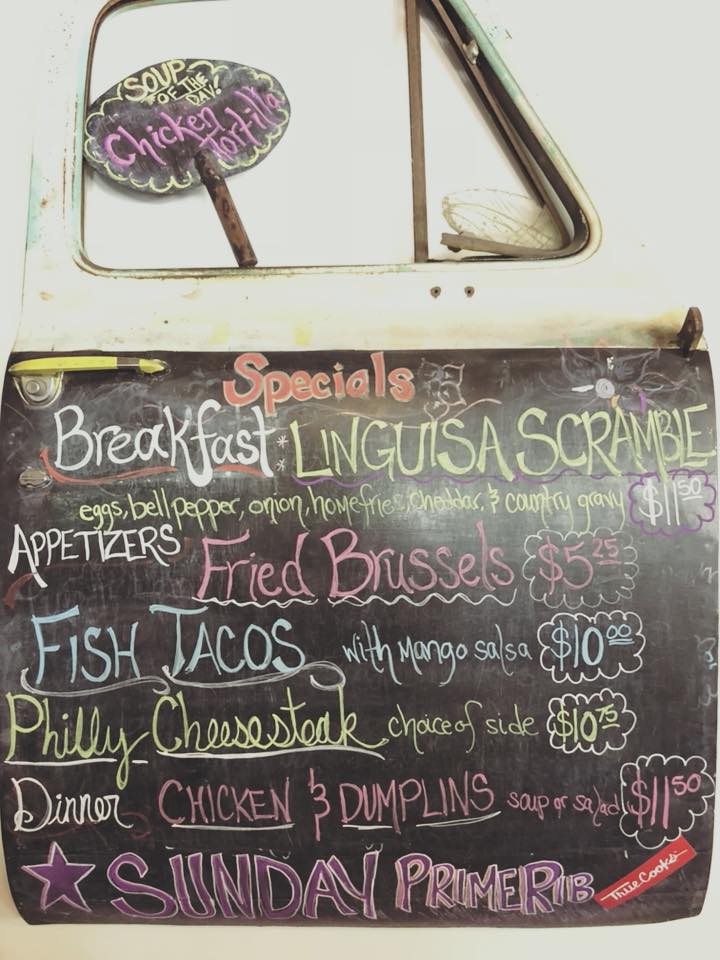 SOUP
OF THE
DAY!
Chicken
Tortilla
Specials
Breakfast: LINGUISA SCRAMBLE
eggs, bell pepper, onion, homefries, cheddar, & country gravy $11.50
APPETIZERS Fried Brussels $5.25
FISH TACOS with Mango salsa $10.00
Philly Cheesesteak choice of side $10.75
Dinner CHICKEN & DUMPLINS soup or salad $11.50
SUNDAY PRIME RIB